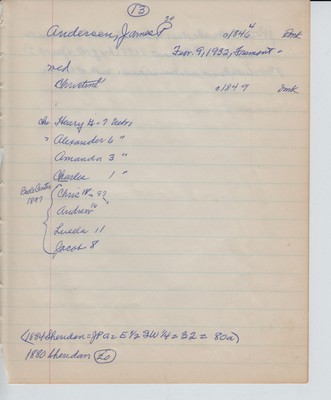 13
Andersen, James P 20 ɑ1846 4 Dmk
Nov. 9, 1932, Fremont
md
Christine ɑ1849 Dmk
chr Henry H - 7 Nebr
" Alexander 6 "
Amanda 3 "
Charles 1 "
Chris 18
Andrew 16
Lueda 11
Jacob 8
(1884 Sheridan = JPa = E½ SW¼ = 32 = 80a)
1880 Sheridan 20